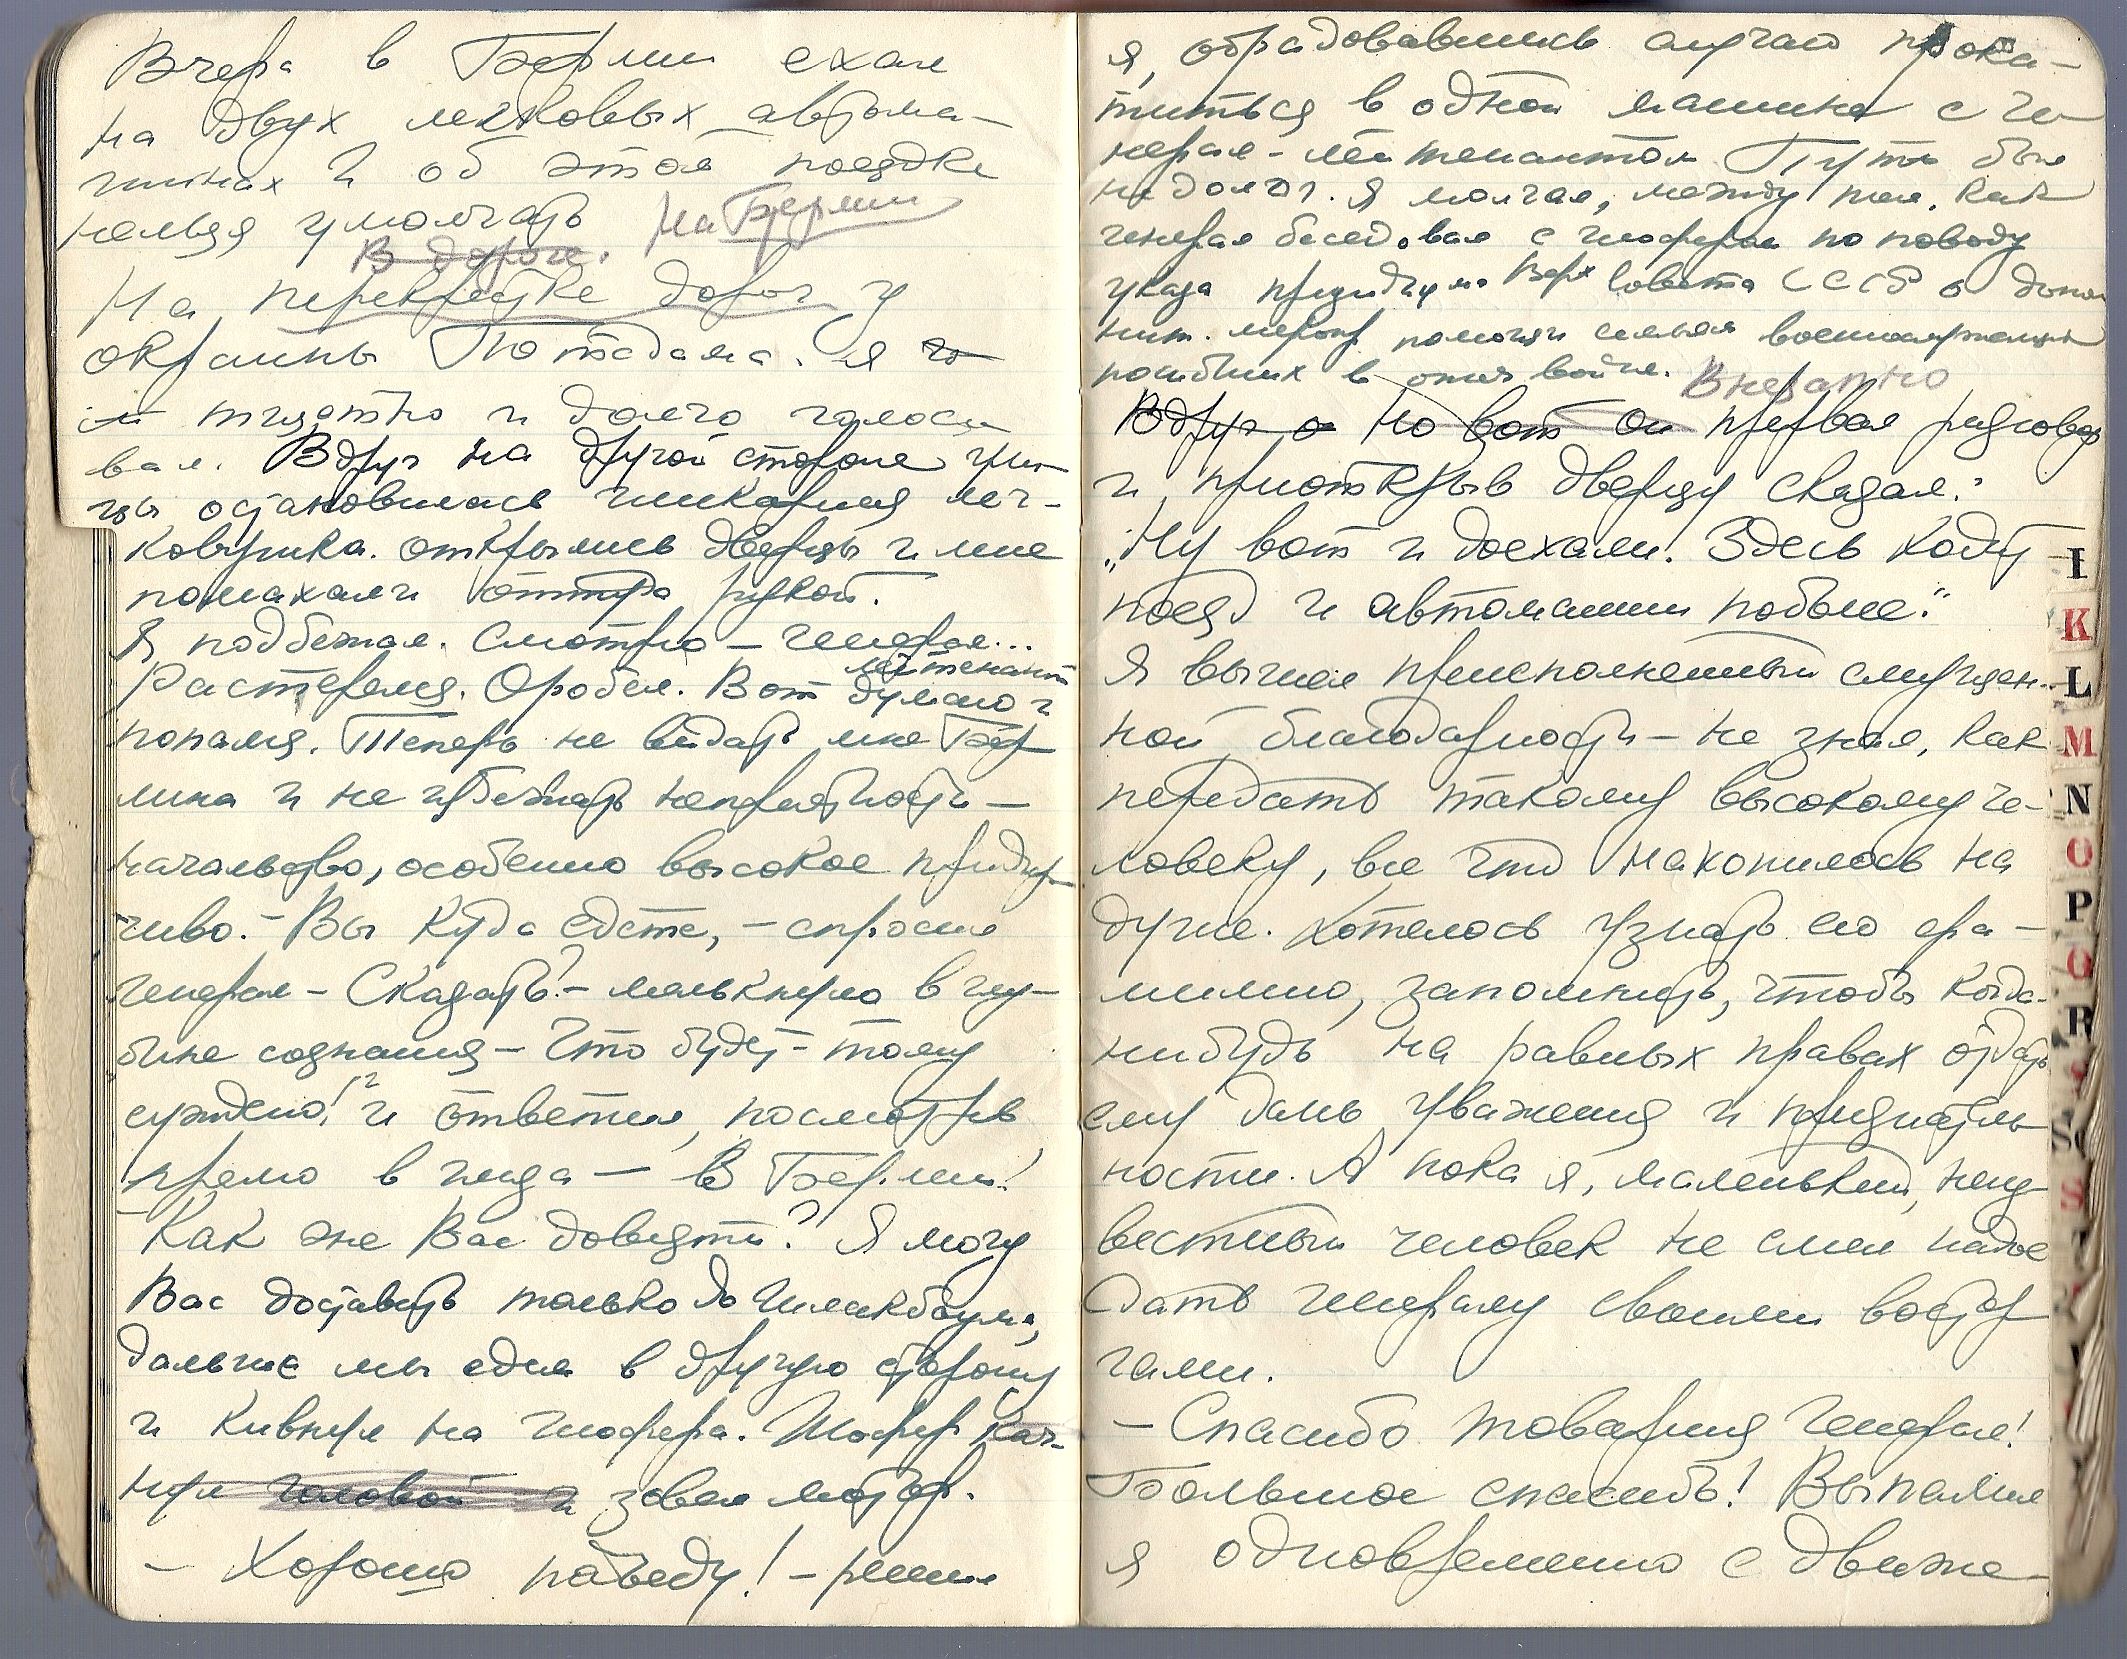 Вчера в Берлин ехал
на двух легковых автома-
шинах и об этой поездке
нельзя умолчать На Берлин
В дороге.
На перекрестке дорог у
окраины Потсдама. я
тщетно и долго голосо
вал. Вдруг на другой стороне ули
цы остановилась шикарная лег-
ковушка. открылись дверцы и мне
помахали оттуда рукой.
Я подбежал. Смотрю – генерал...
лейтенант
Растерялся. Оробел. Вот думаю и
попался. Теперь не видать мне Бер
лина и не избежать неприятности –
начальство, особенно высокое придир
чиво. – Вы куда едете, – спросил
генерал – Сказать? – мелькнуло в глу-
бине сознания – Что будет – тому
суждено! и ответил, посмотрев
прямо в глаза – В Берлин!
– Как же Вас довезти? Я могу
Вас доставить только до шлакбаума,
дальше мы едем в другую сторону
и кивнул на шофера. Шофер кач-
нул головой и завел мотор.
– Хорошо поеду! – решил
я, обрадовавшись случаю прока-
титься в одной машине с ге
нерал-лейтенантом. Путь был
не долог. Я молчал, между тем, как
генерал беседовал с шофером по поводу
указа президиума Верх Совета СССР о допол
нит. мерах помощи семьям военнослужащих
погибших в этой войне. Внезапно
Вдруг о Но вот он прервал разговор
и, приоткрыв дверцу сказал:
„Ну вот и доехали. Здесь ходит
поезд и автомашин побольше."
Я вышел преисполненный смущен-
ной благодарности – не зная, как
передать такому высокому че-
ловеку, все что накопилось на
душе. Хотелось узнать его фа-
милию, запомнить, чтобы когда-
нибудь на равных правах отдать
ему дань уважения и признатель-
ности. А пока я, маленький, неиз-
вестный человек не смел надое
дать генералу своими востор
гами.
– Спасибо товарищ генерал!
Большое спасибо! Выпалил
я одновременно с движе-
I
K
L
M
N
O
P
Q
R
S